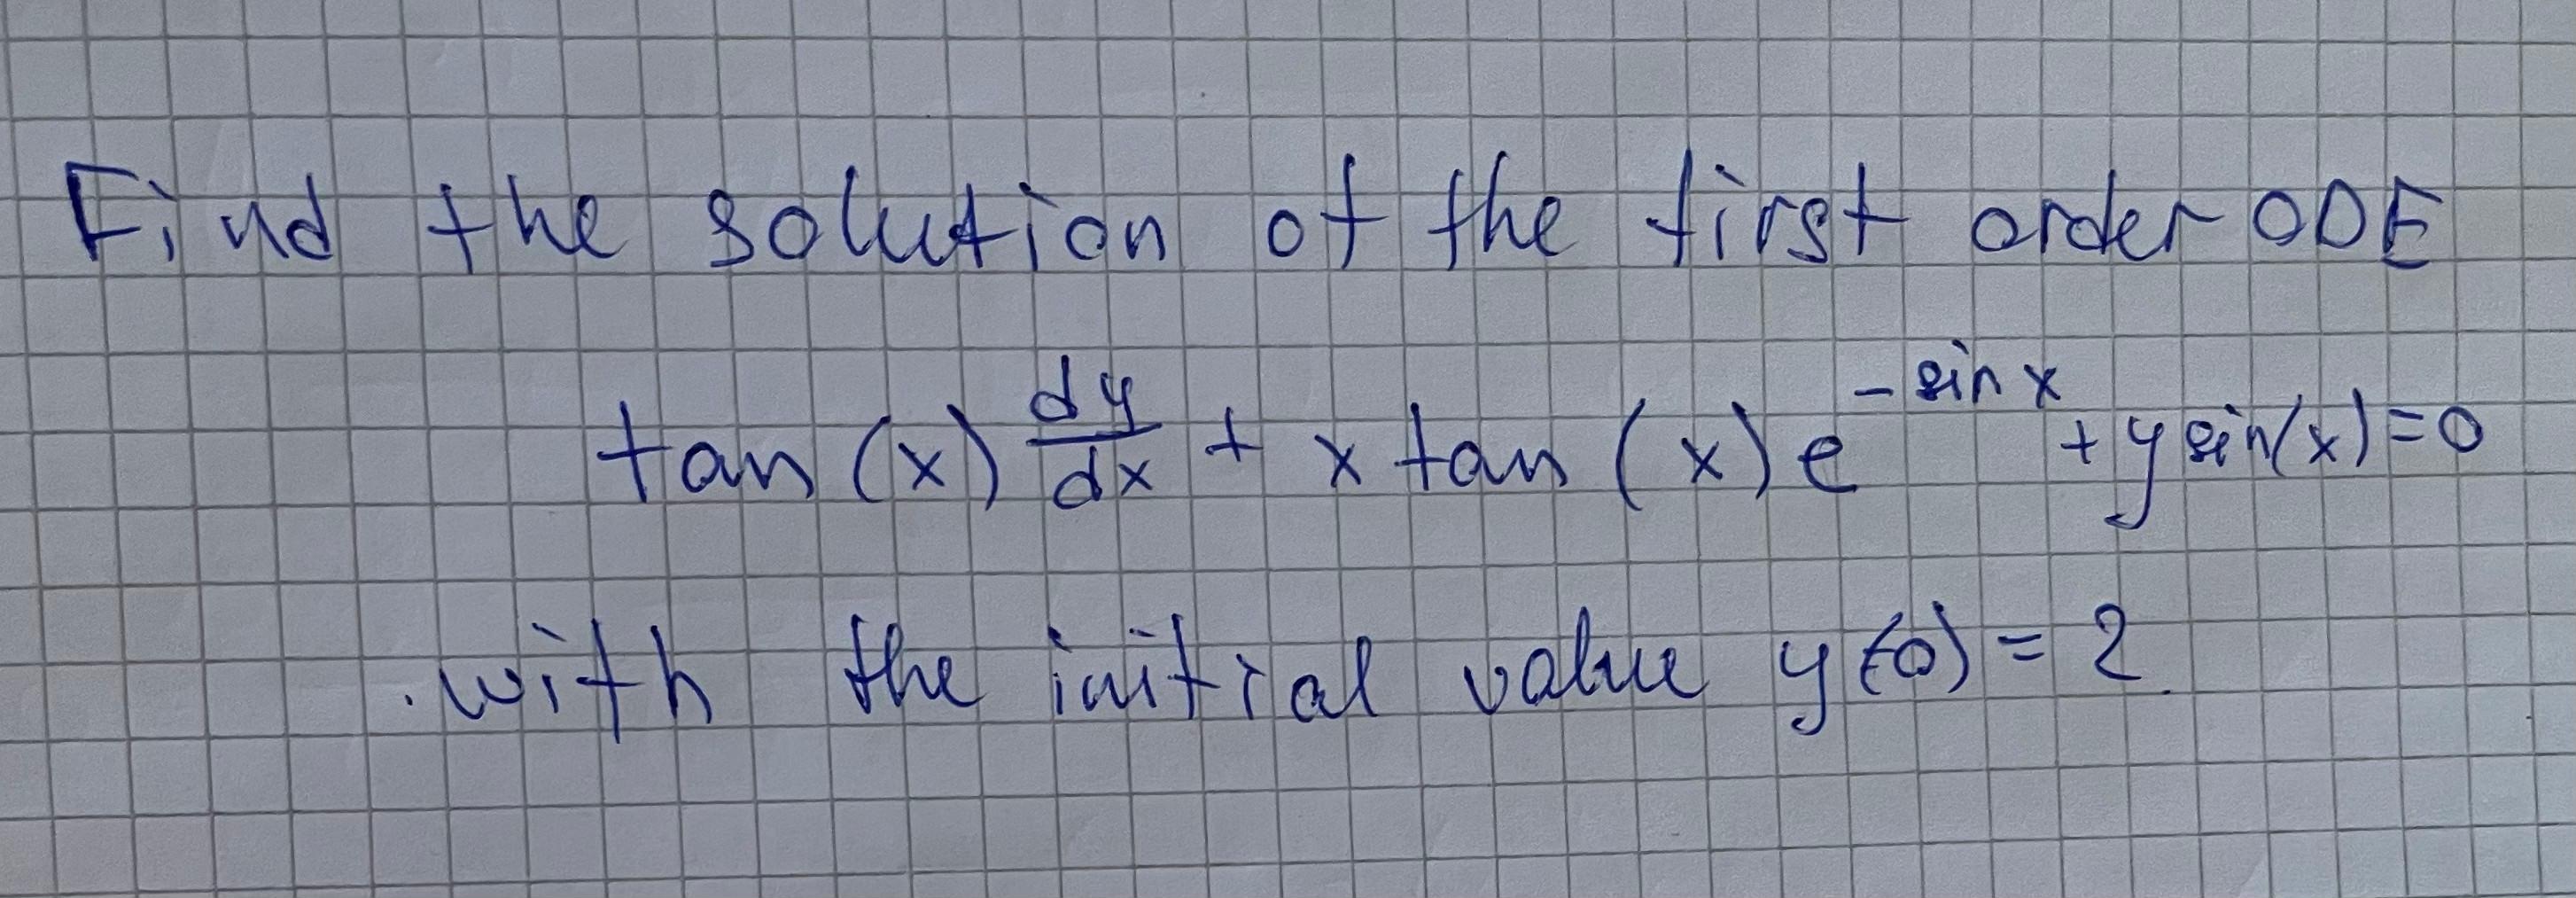 Find the solution of the first order ODE
tan(x) dy/dx + x tan(x) e^(-sin x) + y sin(x) = 0
with the initial value y(0) = 2.